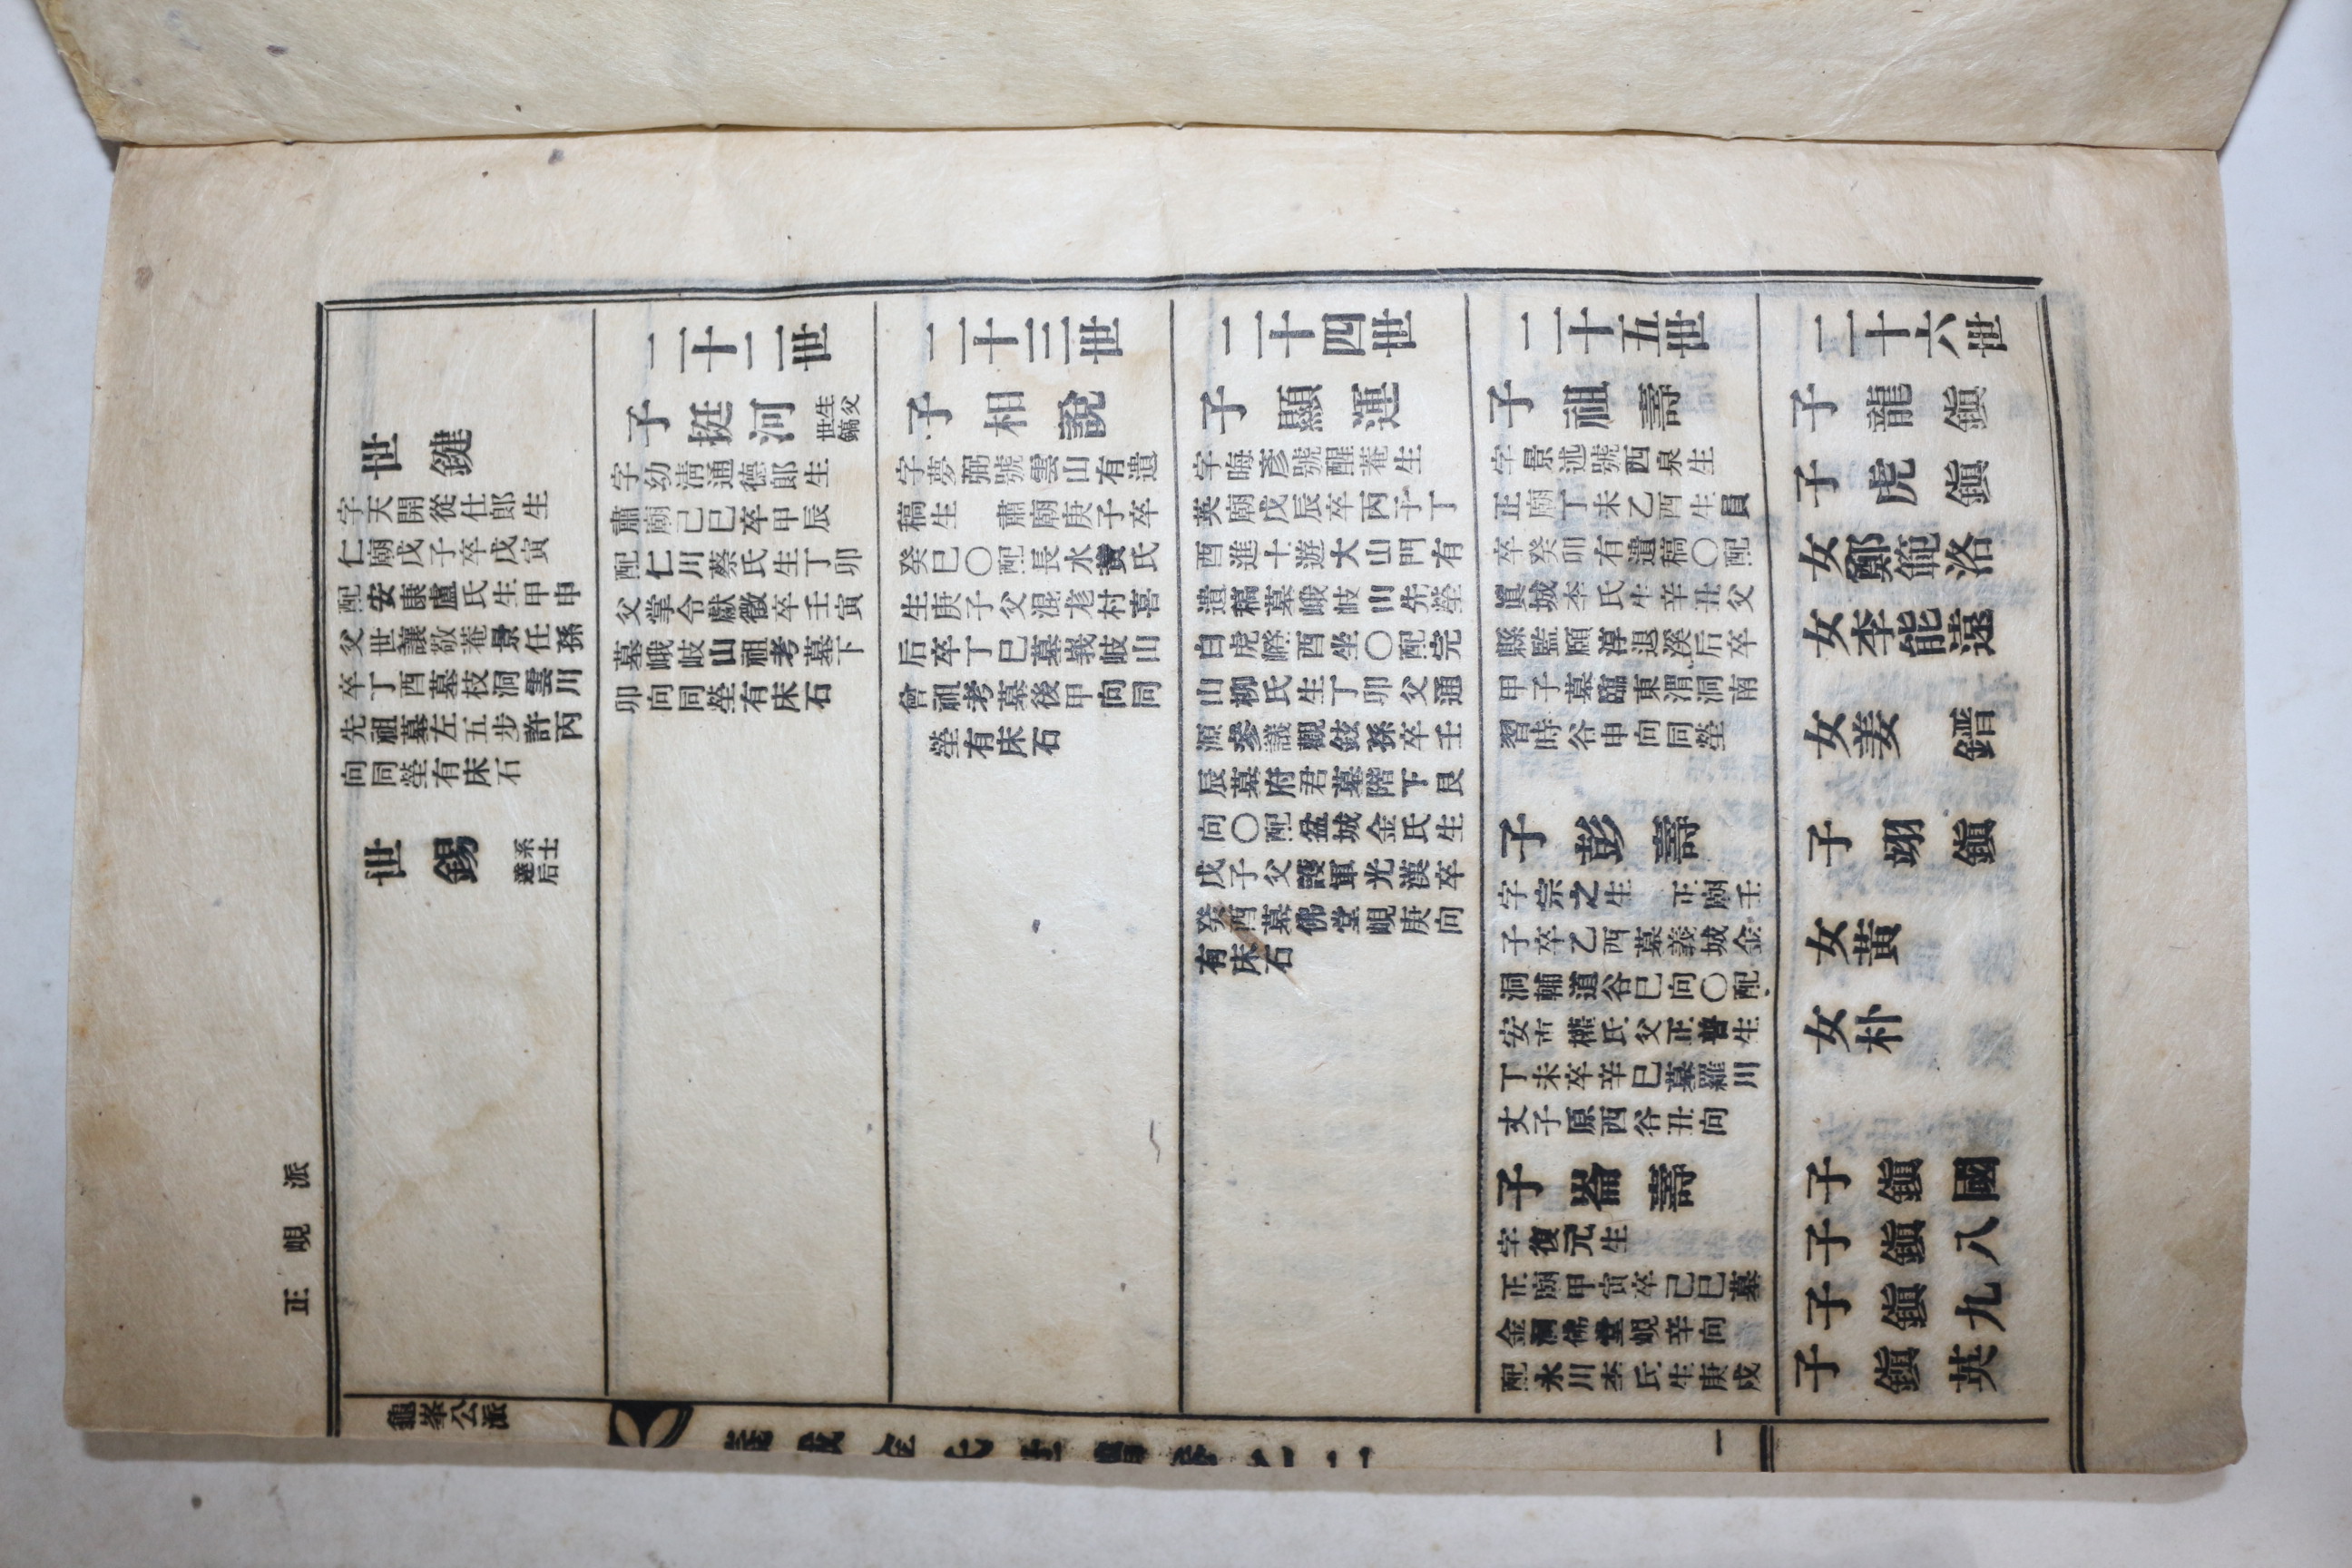 派峴正
世鍵
字天開從仕郎生
仁廟戊子卒戊寅
配安康盧氏生甲申
父世讓敬菴景任孫
卒丁酉墓枝洞雲川
先祖墓左五步許丙
向同塋有床石
世錫 系士達后
二十二世
子挺河 生父世鎬
字幼淸通德郎生
肅廟己巳卒甲辰
配仁川蔡氏生丁卯
父掌令獻徵卒壬寅
墓峨岐山祖考墓下
卯向同塋有床石
二十三世
子相說
字夢弼號雲山有遺
稿生 肅廟庚子卒
癸巳〇配長水黃氏
生庚子父混尨村喜
后卒丁巳墓峩岐山
曾祖考墓後甲向同
塋有床石
二十四世
子顯運
字晦彥號醒菴生
英廟戊辰卒丙子丁
酉進士遊大山門有
遺稿墓峨岐山先塋
白虎嶝酉坐〇配完
山柳氏生丁卯父通
源參議觀鉉孫卒壬
辰墓府君墓階下艮
向〇配盆城金氏生
戊子父護軍光漢卒
癸酉墓佛堂峴庚向
有床石
二十五世
子祖壽
字景述號西泉生
正廟丁未乙酉生員
卒癸卯有遺稿〇配
眞城李氏生辛丑父
縣監願淳退溪后卒
甲子墓臨東渭洞南
習時谷申向同塋
子彭壽
字宗之生 正廟壬
子卒乙酉墓義城金
洞輔道谷巳向〇配
安東權氏父正普生
丁未卒辛巳墓羅川
丈子原西谷丑向
子崙壽
字復元生
正廟甲寅卒己巳墓
金洞佛堂峴辛向
配永川李氏生庚戌
二十六世
子龍鎭
子虎鎭
女鄭範洛
女李能遠
女姜鍇
子翊鎭
女黃
女朴
子鎭國
子鎭八
子鎭九
子鎭英
龜峯公派
義城金氏世譜卷之二
一